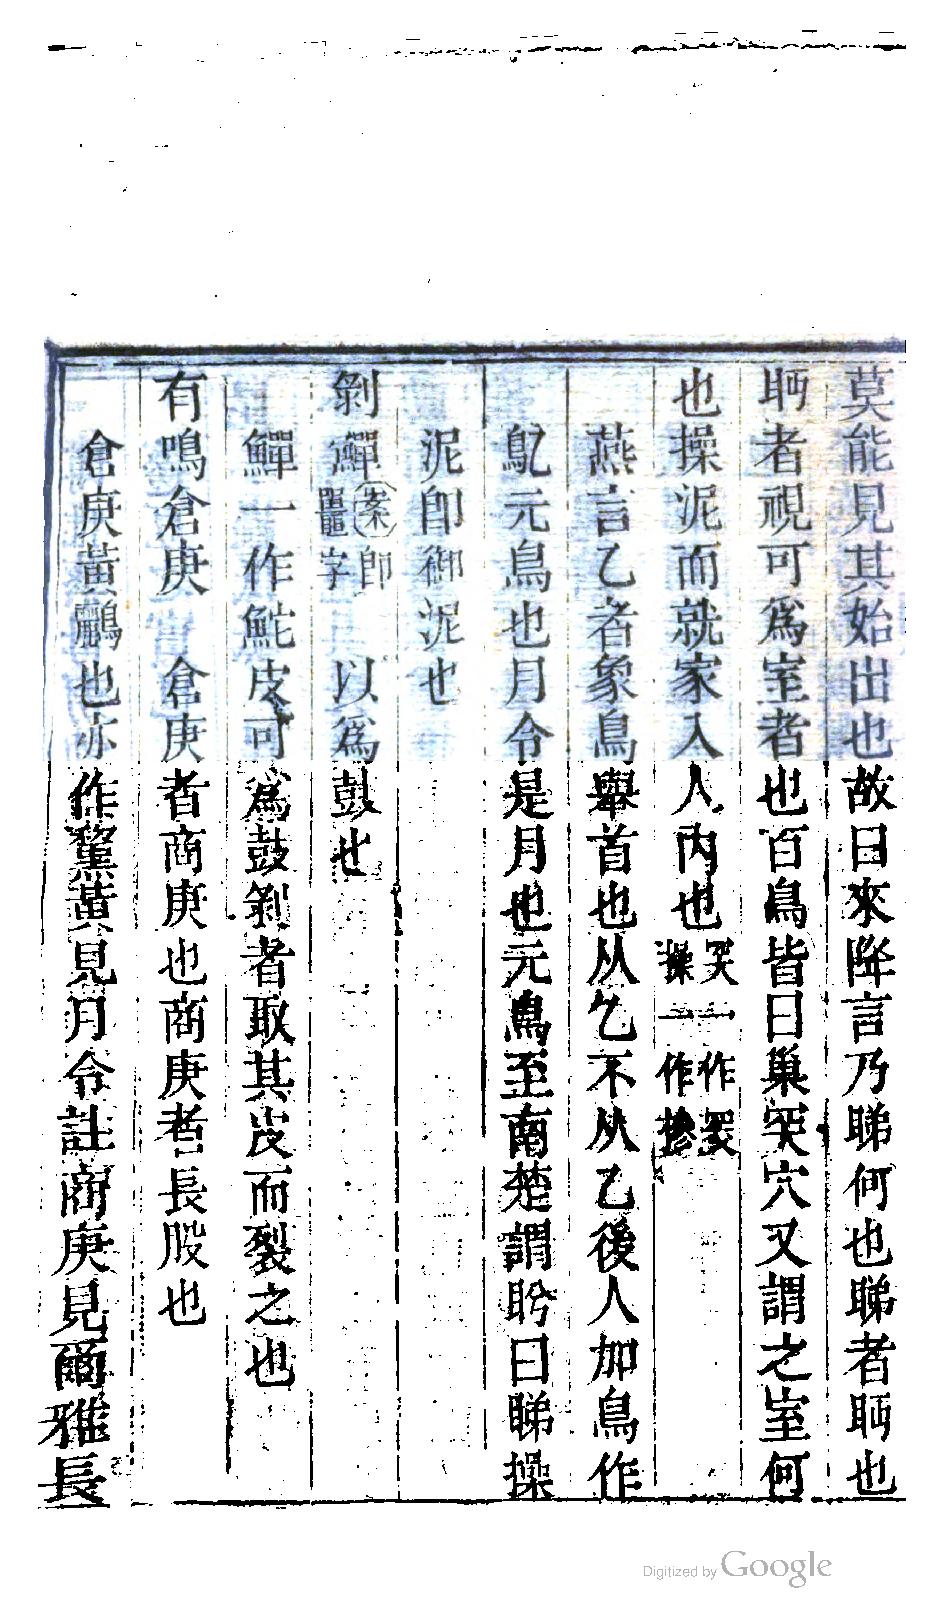 莫能見其始出也故曰來降言乃睇何也睇者眄也
眄者視可爲室者也百鳥皆曰巢穾穴又謂之室何
也操泥而就家入人內也穾一作窔操一作摻
燕言乙者象鳥舉首也从乞不从乙後人加鳥作
鳦元鳥也月令是月也元鳥至南楚謂眄曰睇操
泥卽御泥也
剝鱓案卽鼉字以爲鼓也
鱓一作鮀皮可爲鼓剝者取其皮而裂之也
有鳴倉庚 倉庚者商庚也商庚者長股也
倉庚黃鸝也亦作鶩黃見月令註商庚見爾雅長
Digitized by Google